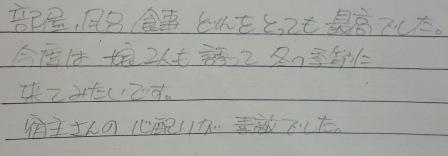 部屋、風呂 食事 どれをとっても 最高でした。
今度は 娘2人も 誘って 冬の季節に
来てみたいです。
宿主さんの 心配りが 素敵でした。